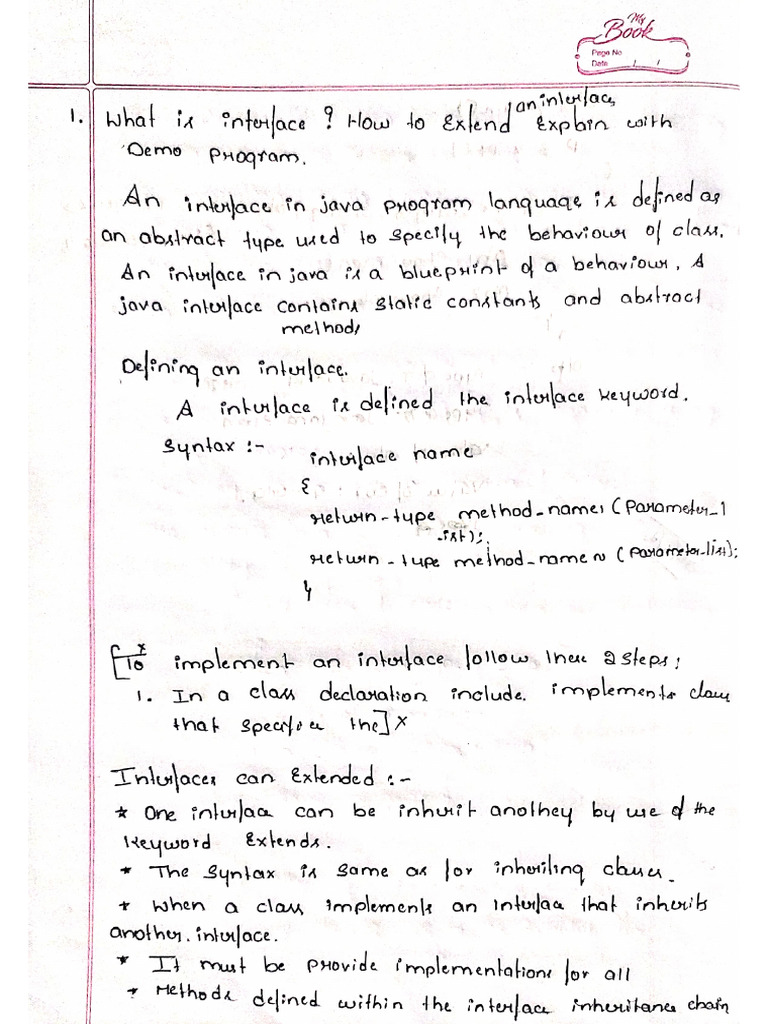 My
Book
Page No
Date / /
1. What is interface ? How to Extend an interface Explain with
Demo program.
An interface in java program language is defined as
an abstract type used to specify the behaviour of class.
An interface in java is a blueprint of a behaviour. A
java interface contains static constants and abstract
methods
Defining an interface.
A interface is defined the interface keyword.
Syntax :- interface name
{
return-type method-name1 (Parameter-l
-ist);
return-type method-name N (parameter-list);
}
[To x implement an interface follow these 2 steps;
1. In a class declaration include. implements class
that specifies the] x
Interfaces can Extended :-
* One interface can be inherit anothey by use of the
keyword Extends.
* The syntax is same as for inheriting classes.
* When a class implements an interface that inherits
another. interface.
* It must be provide implementations for all
* Methods defined within the interface inheritance chain